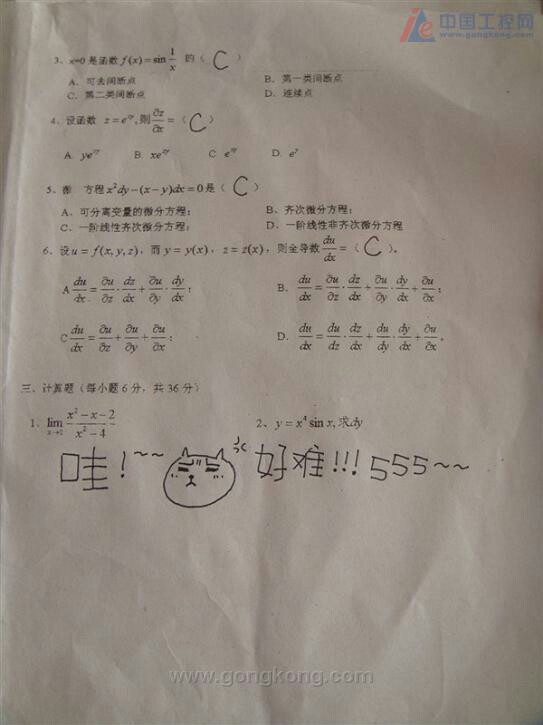 中国工控网
www.gongkong.com
3、x=0是函数 f(x)=sin 1/x 的（ C ）
A. 可去间断点 B. 第一类间断点
C. 第二类间断点 D. 连续点
4、设函数 z=e^{xy},则 ∂z/∂x =（ C ）
A. ye^{xy} B. xe^{xy} C e^{xy} D. e^y
5、微 方程 x²dy-(x-y)dx=0是（ C ）
A、可分离变量的微分方程； B、齐次微分方程；
C、一阶线性齐次微分方程； D、一阶线性非齐次微分方程
6、设u=f(x,y,z)，而y=y(x)，z=z(x)，则全导数 du/dx =（ C ）。
A du/dx = ∂u/∂z · dz/dx + ∂u/∂y · dy/dx； B. du/dx = ∂u/∂z · dz/dx + ∂u/∂y · dy/dx + ∂u/∂x；
C du/dx = ∂u/∂z + ∂u/∂y + ∂u/∂x； D. du/dx = du/dz · dz/dx + du/dy · dy/dx + ∂u/∂x。
三、计算题（每小题6分，共36分）
1、lim x→2 (x²-x-2)/(x²-4) 2、y=x⁴sin x,求dy
哇！~~ 好难!!! 555~~
www.gongkong.com